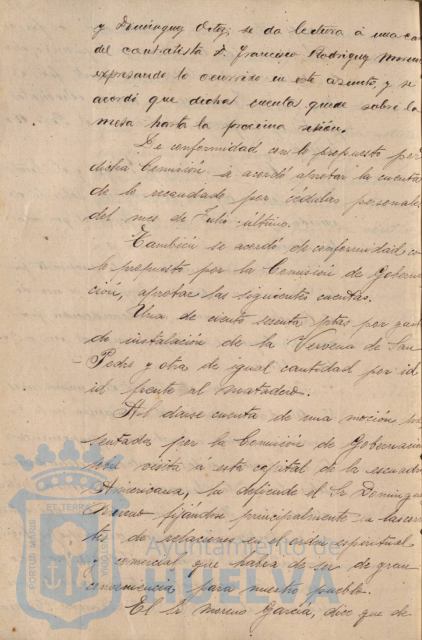 y Dominguez Ortiz, se da lectura á una
del contratista D. Francisco Rodriguez Moreno
expresando lo ocurrido en este asunto, y se
acordó que dicha cuenta quede sobre la
mesa hasta la proxima sesion.
De conformidad con lo propuesto por
dicha Comisión se acordó aprobar la cuenta
de lo recaudado por cédulas personales
del mes de Julio último.
También se acordó de conformidad con
lo propuesto por la Comisión de Goberna-
ción, aprobar las siguientes cuentas.
Una de ciento ptas por
de instalación de la Verbena de San
Pedro y otra de igual cantidad por id
id frente al matadero.
Al darse cuenta de una moción
sentada por la Comisión de Gobernación
visita á esta capital de la escuadra
Americana, la defiende el Sr Dominguez
fijandose principalmente
de relaciones en el orden espiritual
y comercial que habia de ser de gran
conveniencia para nuestro pueblo.
El Sr Moreno García, dice que de
Ayuntamiento de
HUELVA
PORTUS MARIS
ET TERRÆ
CUSTODIA